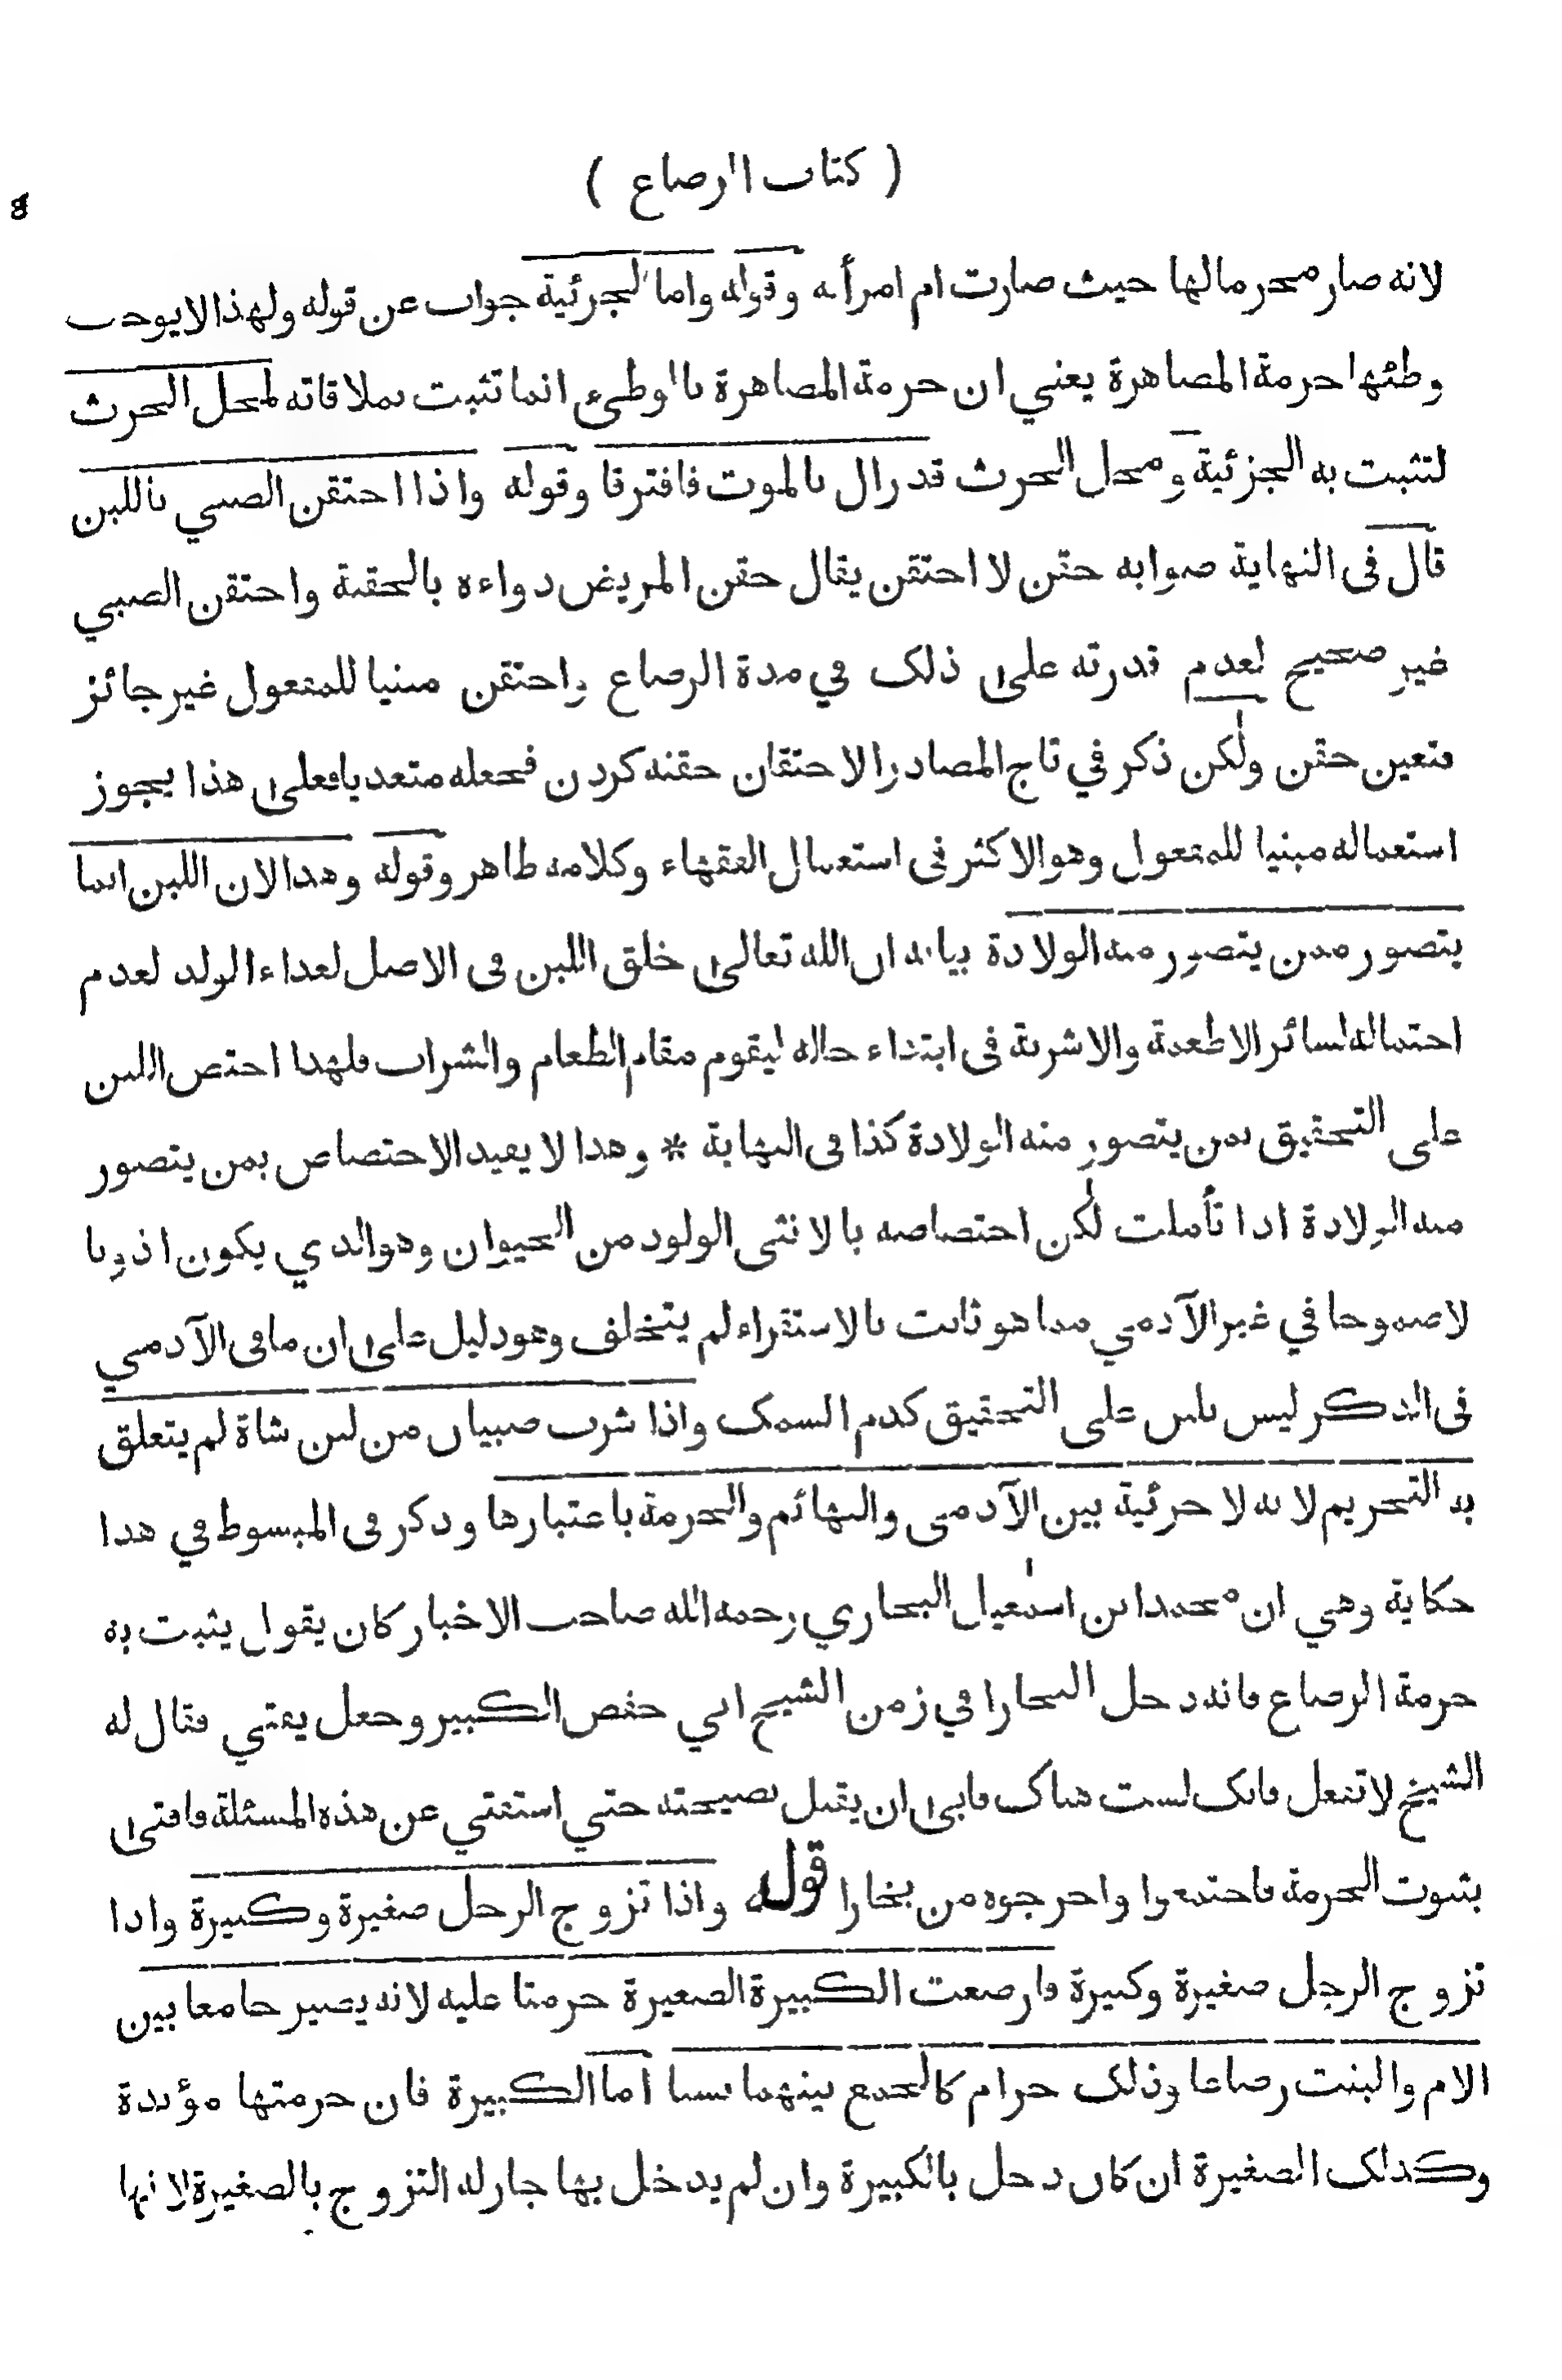 ( كتاب الرضاع )
لانه صار محرما لها حيث صارت ام امرأته وقوله واما الجزئية جواب عن قوله ولهذا لا يوجب
وطئها حرمة المصاهرة يعني ان حرمة المصاهرة بالوطىء انما تثبت بملاقاته لمحل الحرث
لتثبت به الجزئية ومحل الحرث قد زال بالموت فافترقا وقوله واذا احتقن الصبي باللبن
قال فى النهاية صوابه حقن لا احتقن يقال حقن المريض دواءه بالحقنة واحتقن الصبي
غير صحيح لعدم قدرته على ذلك في مدة الرضاع واحتقن مبنيا للمفعول غير جائز
فتعين حقن ولكن ذكر في تاج المصادر الاحتقان حقنه كردن فجعله متعديا فعلى هذا يجوز
استعماله مبنيا للمفعول وهو الاكثر فى استعمال الفقهاء وكلامه ظاهر وقوله وهذا لان اللبن انما
يتصور ممن يتصور منه الولادة بيانه ان الله تعالى خلق اللبن فى الاصل لغذاء الولد لعدم
احتماله لسائر الاطعمة والاشربة فى ابتداء حاله ليقوم مقام الطعام والشراب فلهذا اختص اللبن
على التحقيق بمن يتصور منه الولادة كذا فى النهاية * وهذا لا يفيد الاختصاص بمن يتصور
منه الولادة اذا تأملت لكن اختصاصه بالانثى الولود من الحيوان وهو الذي يكون اذونا
لا صموخا في غير الآدمي مما هو ثابت بالاستقراء لم يتخلف وهو دليل على ان ما فى الآدمي
فى الذكر ليس بلبن على التحقيق كدم السمك واذا شرب صبيان من لبن شاة لم يتعلق
به التحريم لانه لا جزئية بين الآدمى والبهائم والحرمة باعتبارها وذكر فى المبسوط في هذا
حكاية وهي ان محمد ابن اسمعيل البخاري رحمه الله صاحب الاخبار كان يقول يثبت به
حرمة الرضاع فانه دخل البخارا في زمن الشيخ ابي حفص الكبير وجعل يفتي فقال له
الشيخ لا تفعل فانك لست هناك فابى ان يقبل نصيحته حتي استفتي عن هذه المسئلة فافتى
بثبوت الحرمة فاجتمعوا واخرجوه من بخارا قوله واذا تزوج الرجل صغيرة وكبيرة واذا
تزوج الرجل صغيرة وكبيرة فارضعت الكبيرة الصغيرة حرمتا عليه لانه يصير جامعا بين
الام والبنت رضاعا وذلك حرام كالجمع بينهما نسبا اما الكبيرة فان حرمتها مؤبدة
وكذلك الصغيرة ان كان دخل بالكبيرة وان لم يدخل بها جاز له التزوج بالصغيرة لانها